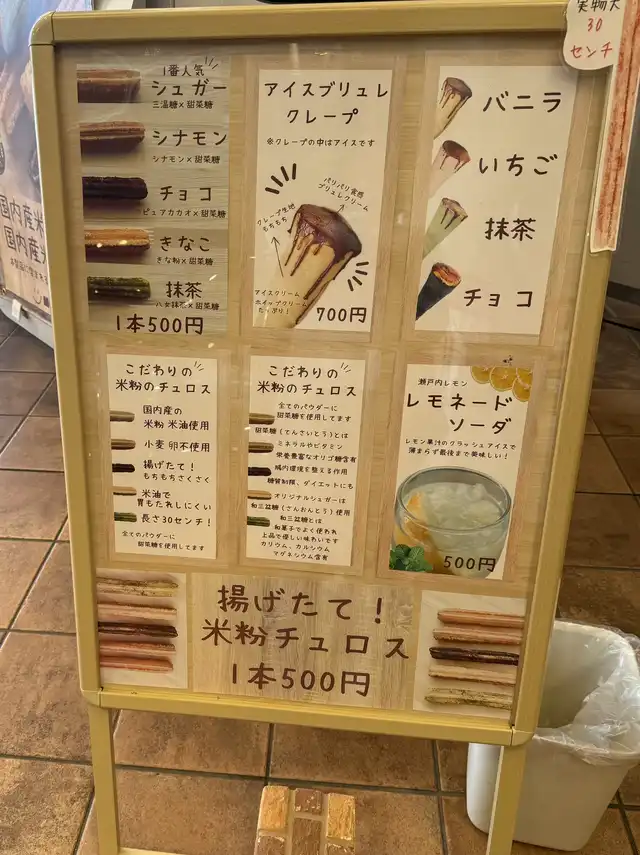 実物大
30
センチ
国内産米
国内産
1番人気
シュガー
三温糖×甜菜糖
シナモン
シナモン×甜菜糖
チョコ
ピュアカカオ×甜菜糖
きなこ
きな粉×甜菜糖
抹茶
八女抹茶×甜菜糖
1本500円
アイスブリュレ
クレープ
※クレープの中はアイスです
パリパリ食感
ブリュレクリーム
クレープ生地
もちもち
アイスクリーム
ホイップクリーム
たっぷり!
700円
バニラ
いちご
抹茶
チョコ
こだわりの
米粉のチュロス
国内産の
米粉 米油使用
小麦 卵不使用
揚げたて!
もちもちさくさく
米油で
胃もたれしにくい
長さ30センチ!
全てのパウダーに
甜菜糖を使用してます
こだわりの
米粉のチュロス
全てのパウダーに
甜菜糖を使用してます
甜菜糖(てんさいとう)とは
ミネラルやビタミン
栄養豊富なオリゴ糖含有
腸内環境を整える作用
糖質制限、ダイエットにも
オリジナルシュガーは
和三盆糖(さんおんとう)使用
和三盆糖とは
和菓子でよく使われ
上品で優しい味わいです
カリウム、カルシウム
マグネシウム含有
瀬戸内レモン
レモネード
ソーダ
レモン果汁のクラッシュアイスで
薄まらず最後まで美味しい!
500円
揚げたて!
米粉チュロス
1本500円